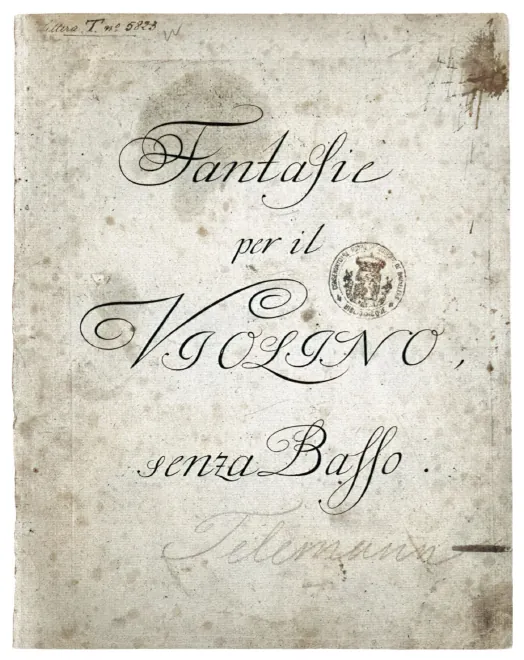 Littera T. nº 5823 W
1
Fantasie
per il
VIOLINO,
senza Basso.
Telemann